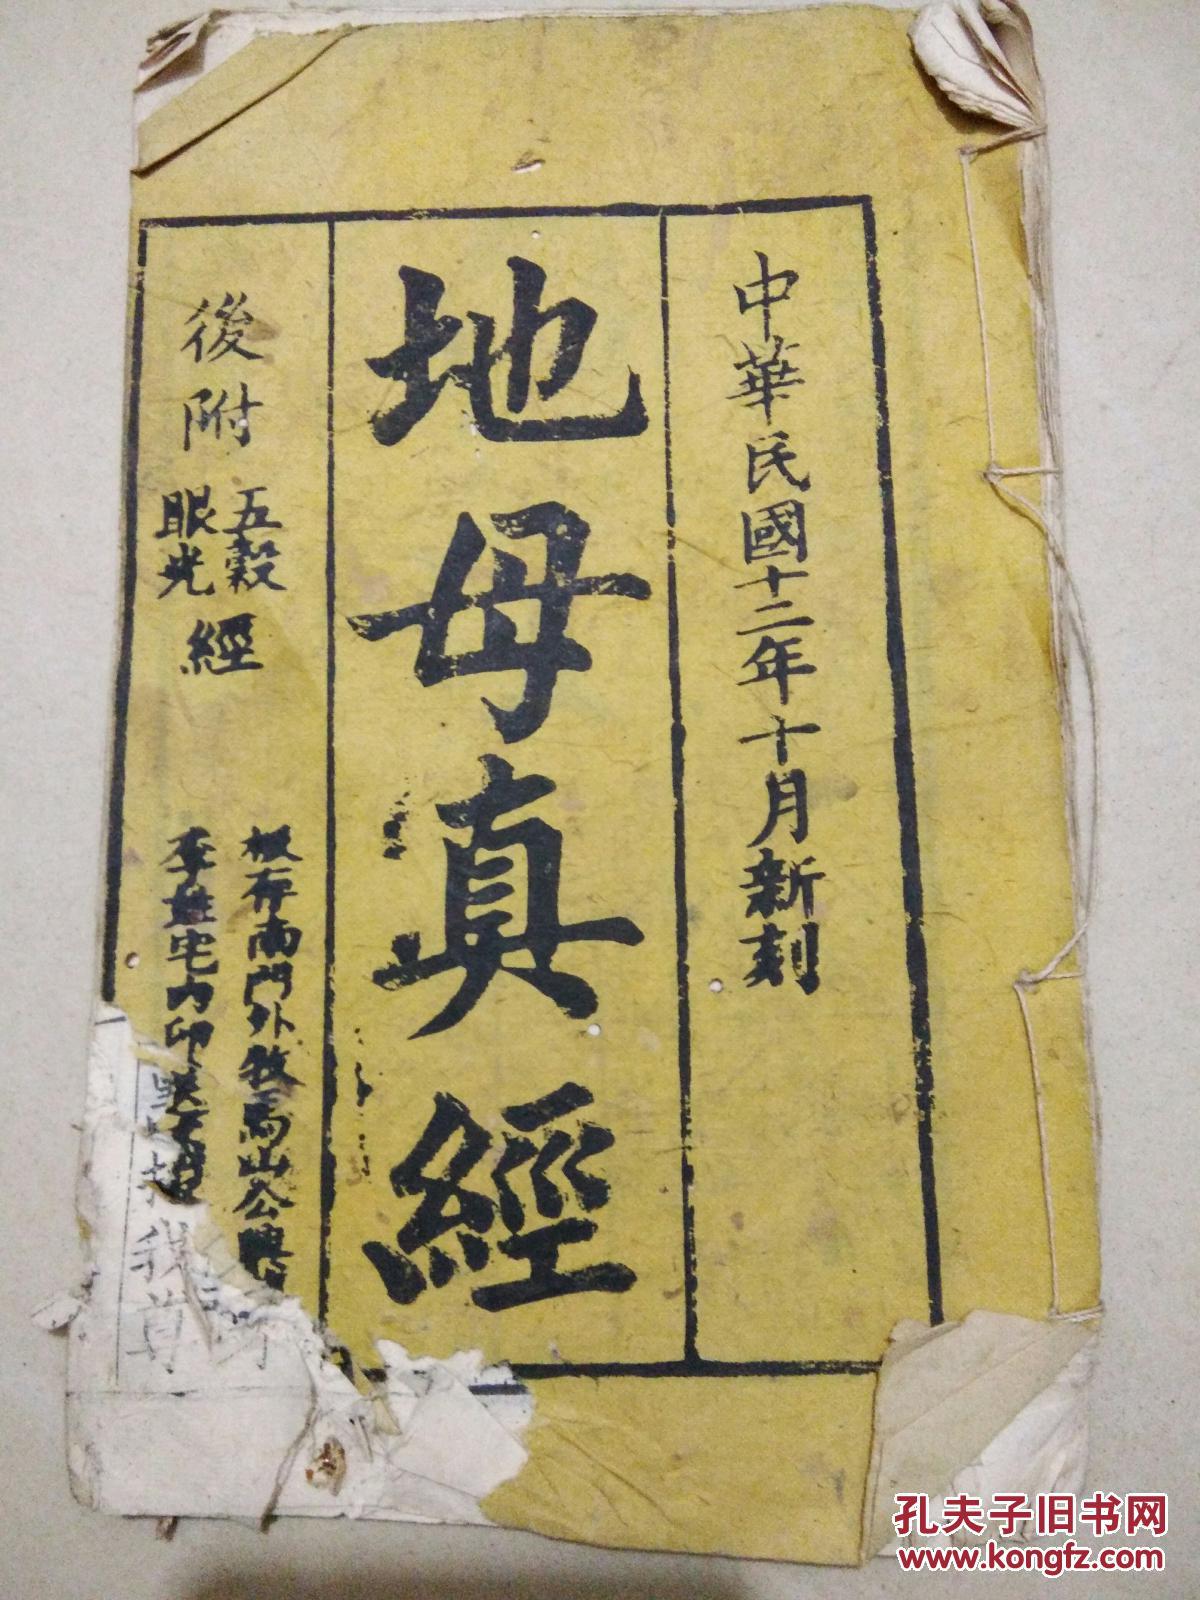 中華民國十二年十月新刻
地母真經
後附
五穀
眼光
經
板存南門外牧馬山公
李姓宅內印送
我尊
孔夫子旧书网
www.kongfz.com